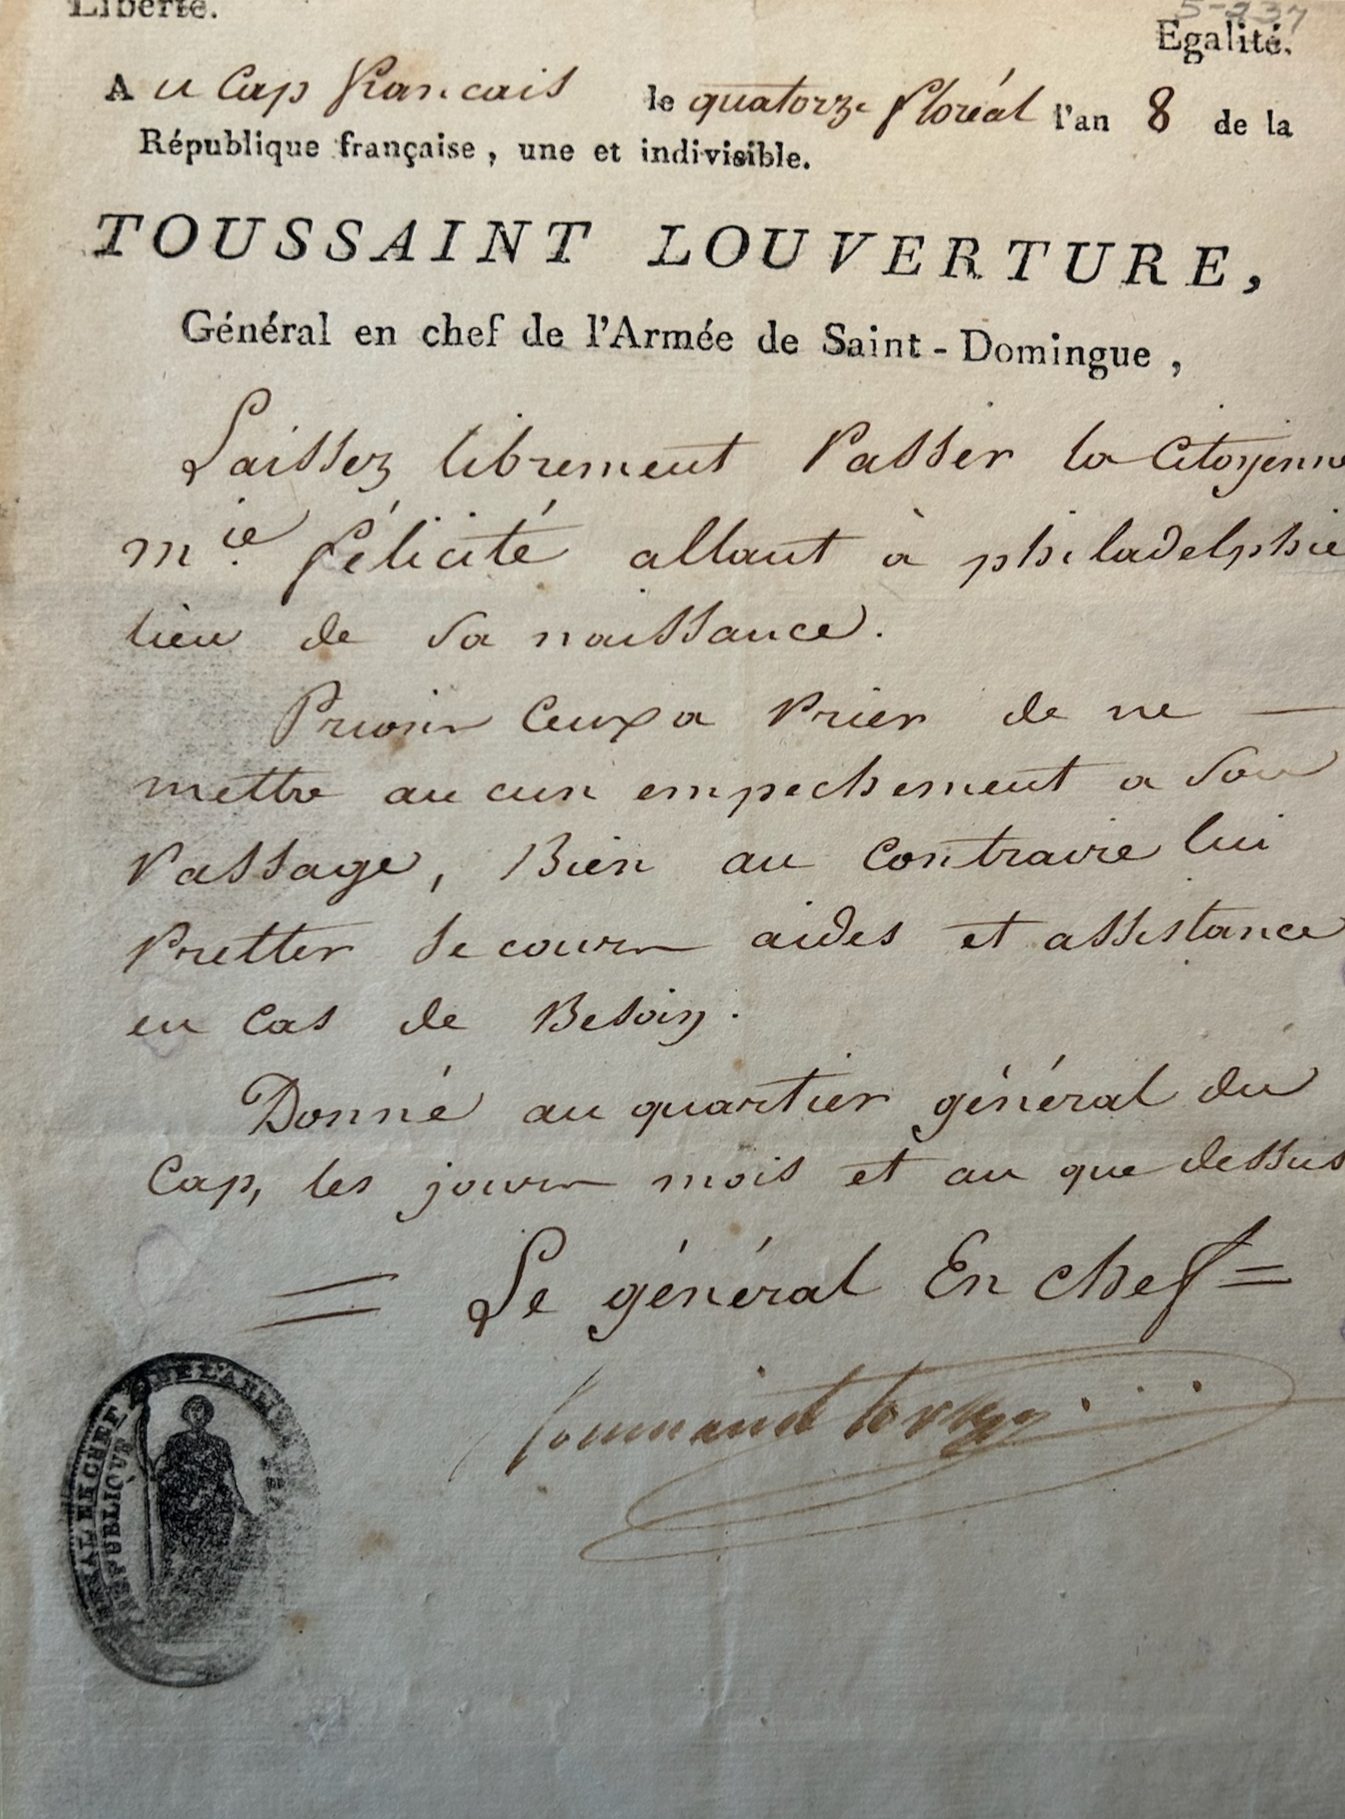 Liberté.
5-237
Egalité.
Au Cap francais le quatorze floréal l'an 8 de la
République française, une et indivisible.
TOUSSAINT LOUVERTURE,
Général en chef de l'Armée de Saint-Domingue,
Laissez librement Passer la Citoyenne
m.ie félicité allant à philadelphie
lieu de sa naissance.
Prions Ceux a Prier de ne —
mettre aucun empechement a son
Passage, Bien au Contraire lui
Pretter secours aides et assistance
en Cas de Besoin.
Donné au quartier général du
Cap, les jours mois et an que dessus
= Le général En chef =
Toussaint Louverture
GÉNÉRAL EN CHEF DE L'ARMÉE
RÉPUBLIQUE